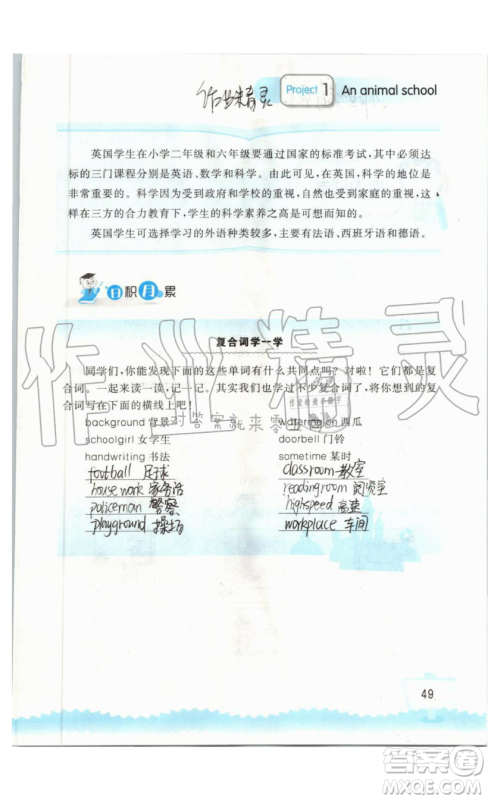 作业精灵
Project 1 An animal school
英国学生在小学二年级和六年级要通过国家的标准考试，其中必须达
标的三门课程分别是英语、数学和科学。由此可见，在英国，科学的地位是
非常重要的。科学因为受到政府和学校的重视，自然也受到家庭的重视，这
样在三方的合力教育下，学生的科学素养之高是可想而知的。
英国学生可选择学习的外语种类较多，主要有法语、西班牙语和德语。
日积月累
复合词学一学
同学们，你能发现下面的这些单词有什么共同点吗？对啦！它们都是复
合词。一起来读一读，记一记。其实我们也学过不少复合词了，将你想到的复
合词写在下面的横线上吧！
background 背景 watermelon 西瓜
schoolgirl 女学生 doorbell 门铃
handwriting 书法 sometime 某时
football 足球 classroom 教室
housework 家务活 readingroom 阅览室
policeman 警察 highspeed 高速
playground 操场 workplace 车间
作业精灵
对答案就来零五网
49
答案圈
MXQE.COM